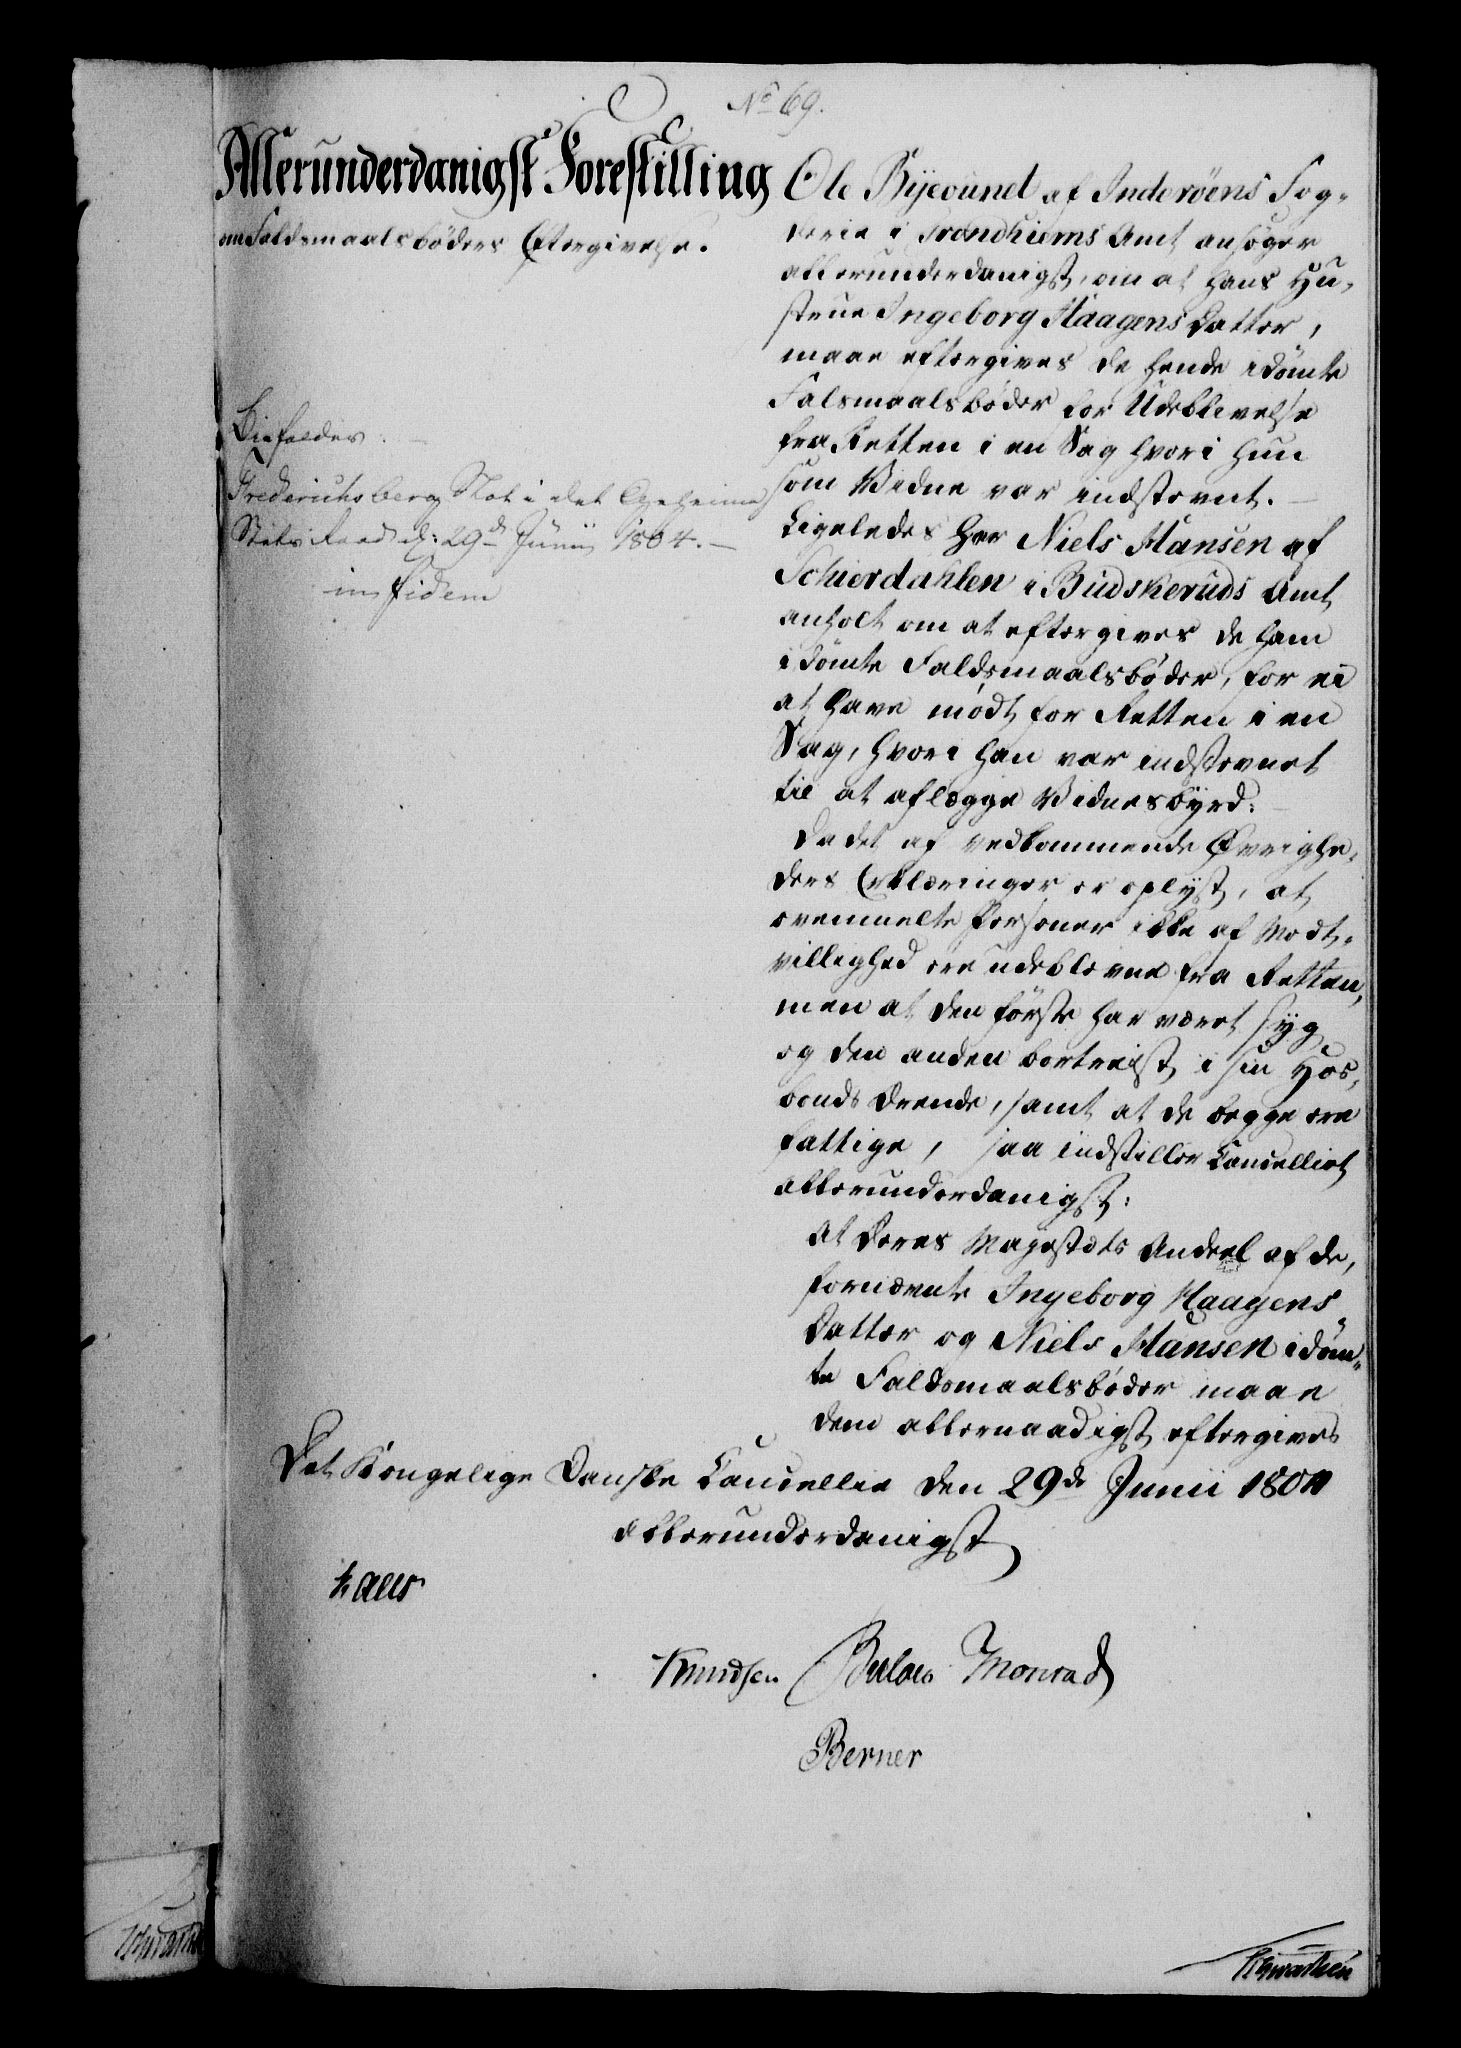 No 69.
Allerunderdanigst Forestilling
om Faldsmaalsbøders Eftergivelse.
Bifaldes.
Frederichsberg Slot i det Geheime
Stats Raad d: 29de Junii 1804.
in fidem
Ole Byevund af Inderöens Fog-
derie i Trondhiems Amt ansøger
allerunderdanigst, om at hans Hu-
strue Ingeborg Haagens Datter,
maae eftergives de hende idömte
Falsmaalsbøder for Udeblivelse
fra Retten i en Sag hvori hun
som Vidne var indstevnt.
Ligeledes har Niels Hansen af
Schierdahlen i Budskeruds Amt
anholt om at eftergives de ham
idömte Faldsmaalsbøder, for ei
at have mødt for Retten i en
Sag, hvori han var indstevnet
til at aflægge Vidnesbyrd.
Da det af vedkommende Øvrighe-
ders Erklæringer er oplyst, at
ovenmelte Personer ikke af Modt-
villighed ere udeblevne fra Retten,
men at den förste har været syg
og den anden bortreist i sin Hos-
bonds Ærende, samt at de begge ere
fattige, saa indstiller Cancelliet
allerunderdanigst:
At Deres Majestæts Andeel af de,
fornævnte Ingeborg Haagens
Datter og Niels Hansen idöm-
te Faldsmaalsbøder maae
dem allernaadigst eftergives
Det Kongelige Danske Cancellie den 29de Junii 1804
Allerunderdanigst
Kaas
Knudsen Bülow Monrad
Berner